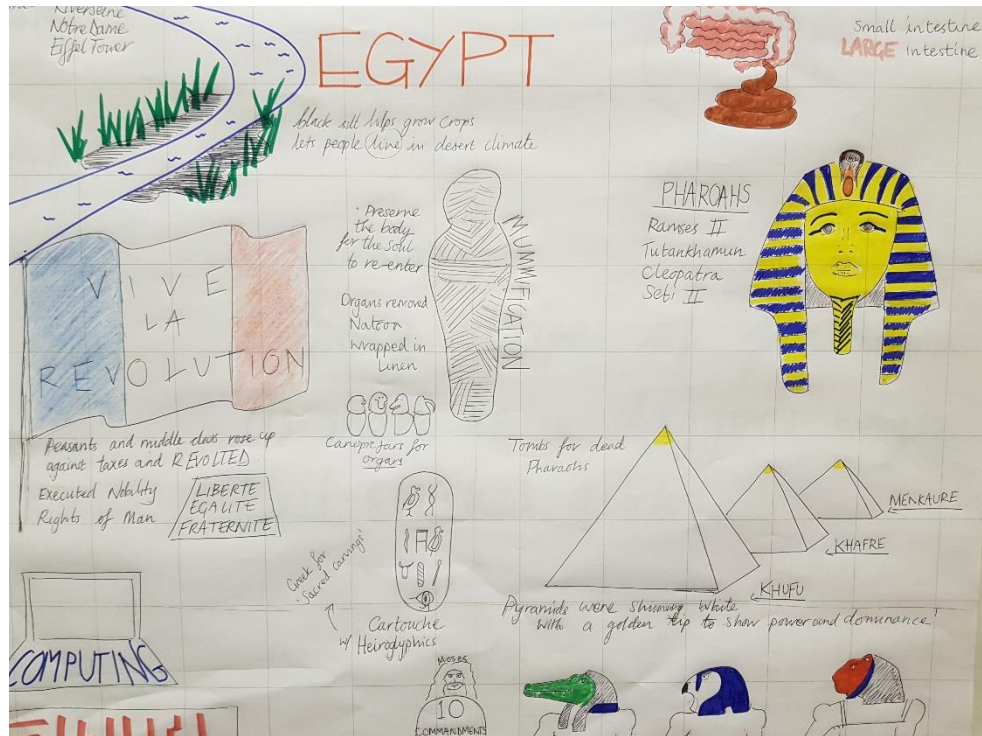 Riverseine
Notre Dame
Eiffel Tower
EGYPT
Small intestine
LARGE intestine
black silt helps grow crops
lets people live in desert climate
· Preserve
the body
for the soul
to re-enter
Organs removed
Natron
Wrapped in
Linen
MUMMIFICATION
PHAROAHS
Ramses II
Tutankhamun
Cleopatra
Seti II
VIVE
LA
REVOLUTION
Peasants and middle class rose up
against taxes and REVOLTED
Executed Nobility
Rights of Man
LIBERTE
EGALITE
FRATERNITE
Canopic Jars for
organs
Tombs for dead
Pharaohs
MENKAURE
KHAFRE
KHUFU
Pyramids were shining white
with a golden tip to show power and dominance!
Greek for
'Sacred carvings'
Cartouche
w/ Heiroglyphics
COMPUTING
Moses
10
COMMANDMENTS